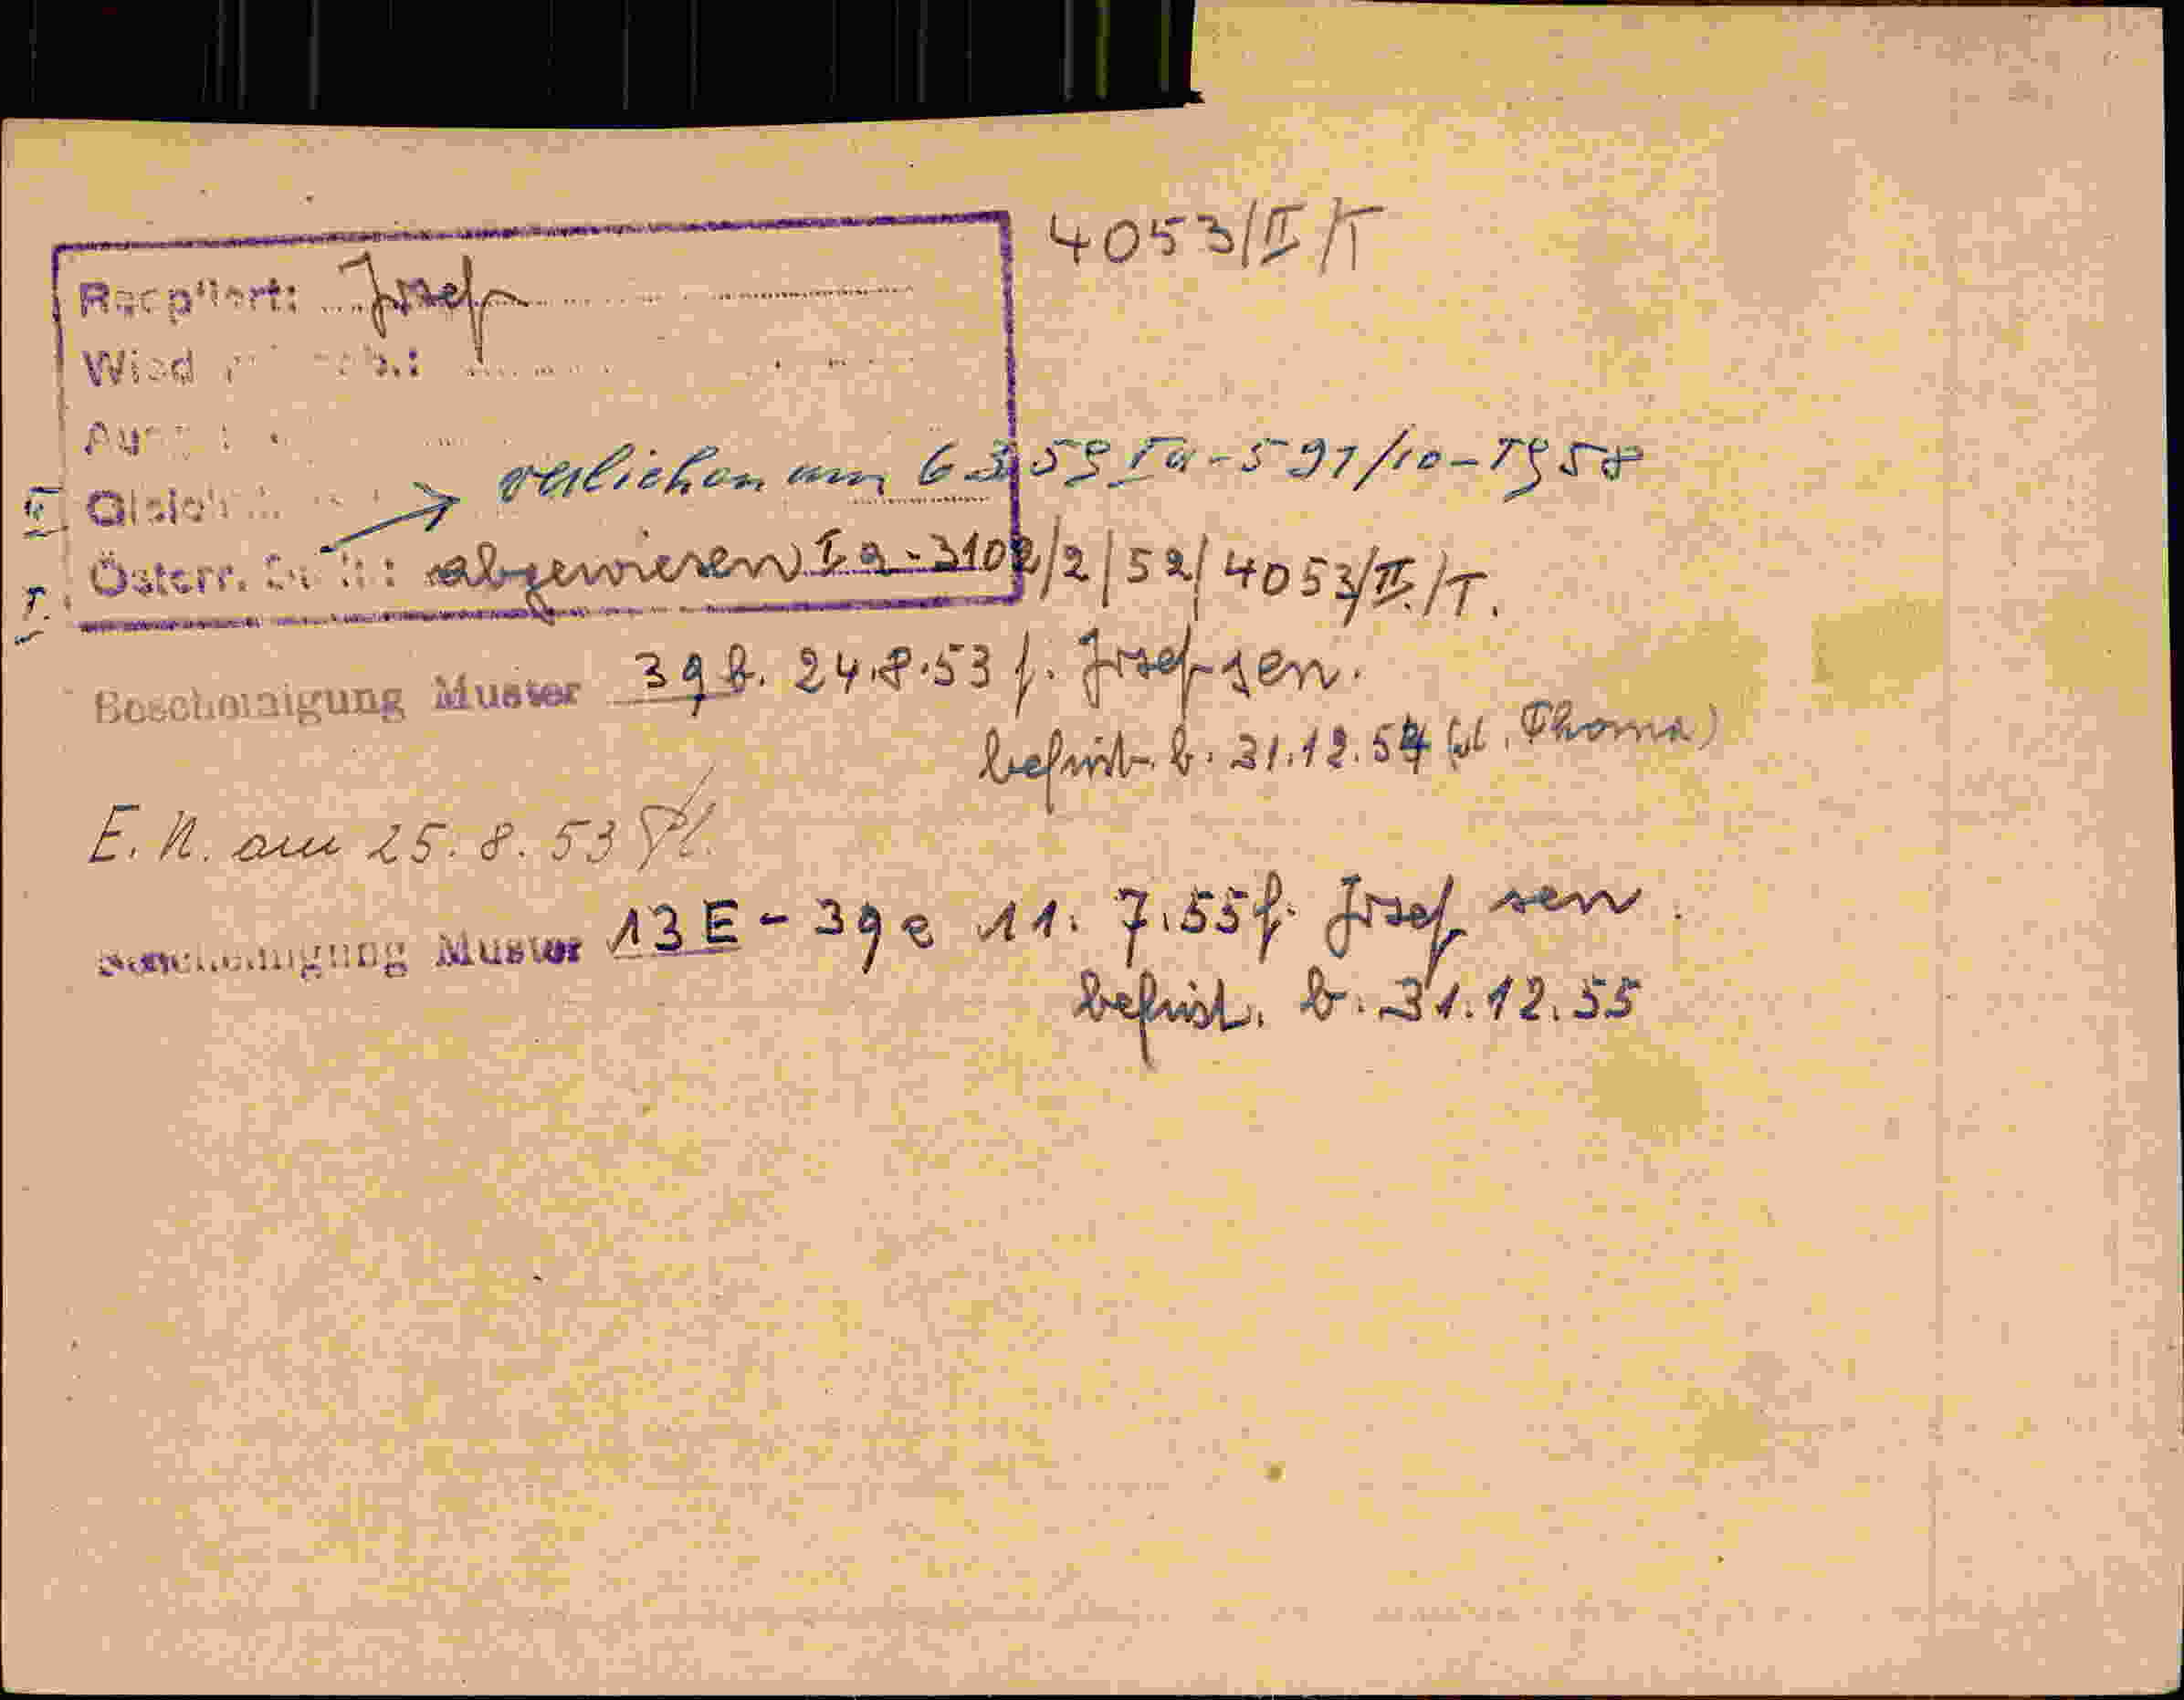 4053/II/T
Josef
II verliehen am 6 3 59 Ia-591/10-Tg 58
I. Österr. abgewiesen Ia-3102/2/52/4053/II./T.
Bescheinigung Muster 39 b. 24.8.53 f. Josef sen.
befrist. b. 31.12.54 Thoma)
E. K. am 25. 8. 53
Bescheinigung Muster 13E-39e 11. 7.55 f. Josef sen.
befrist. b. 31.12.55